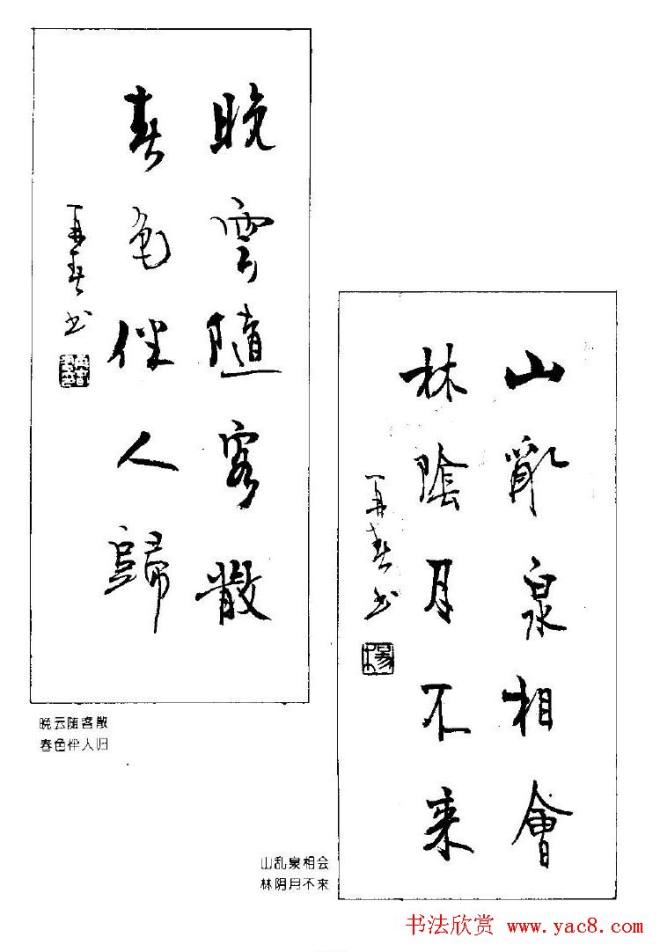 晚雲隨客散
春色伴人歸
再春书
晚云随客散
春色伴人归
山亂泉相會
林陰月不來
再春书
山乱泉相会
林阴月不来
书法欣赏 www.yac8.com